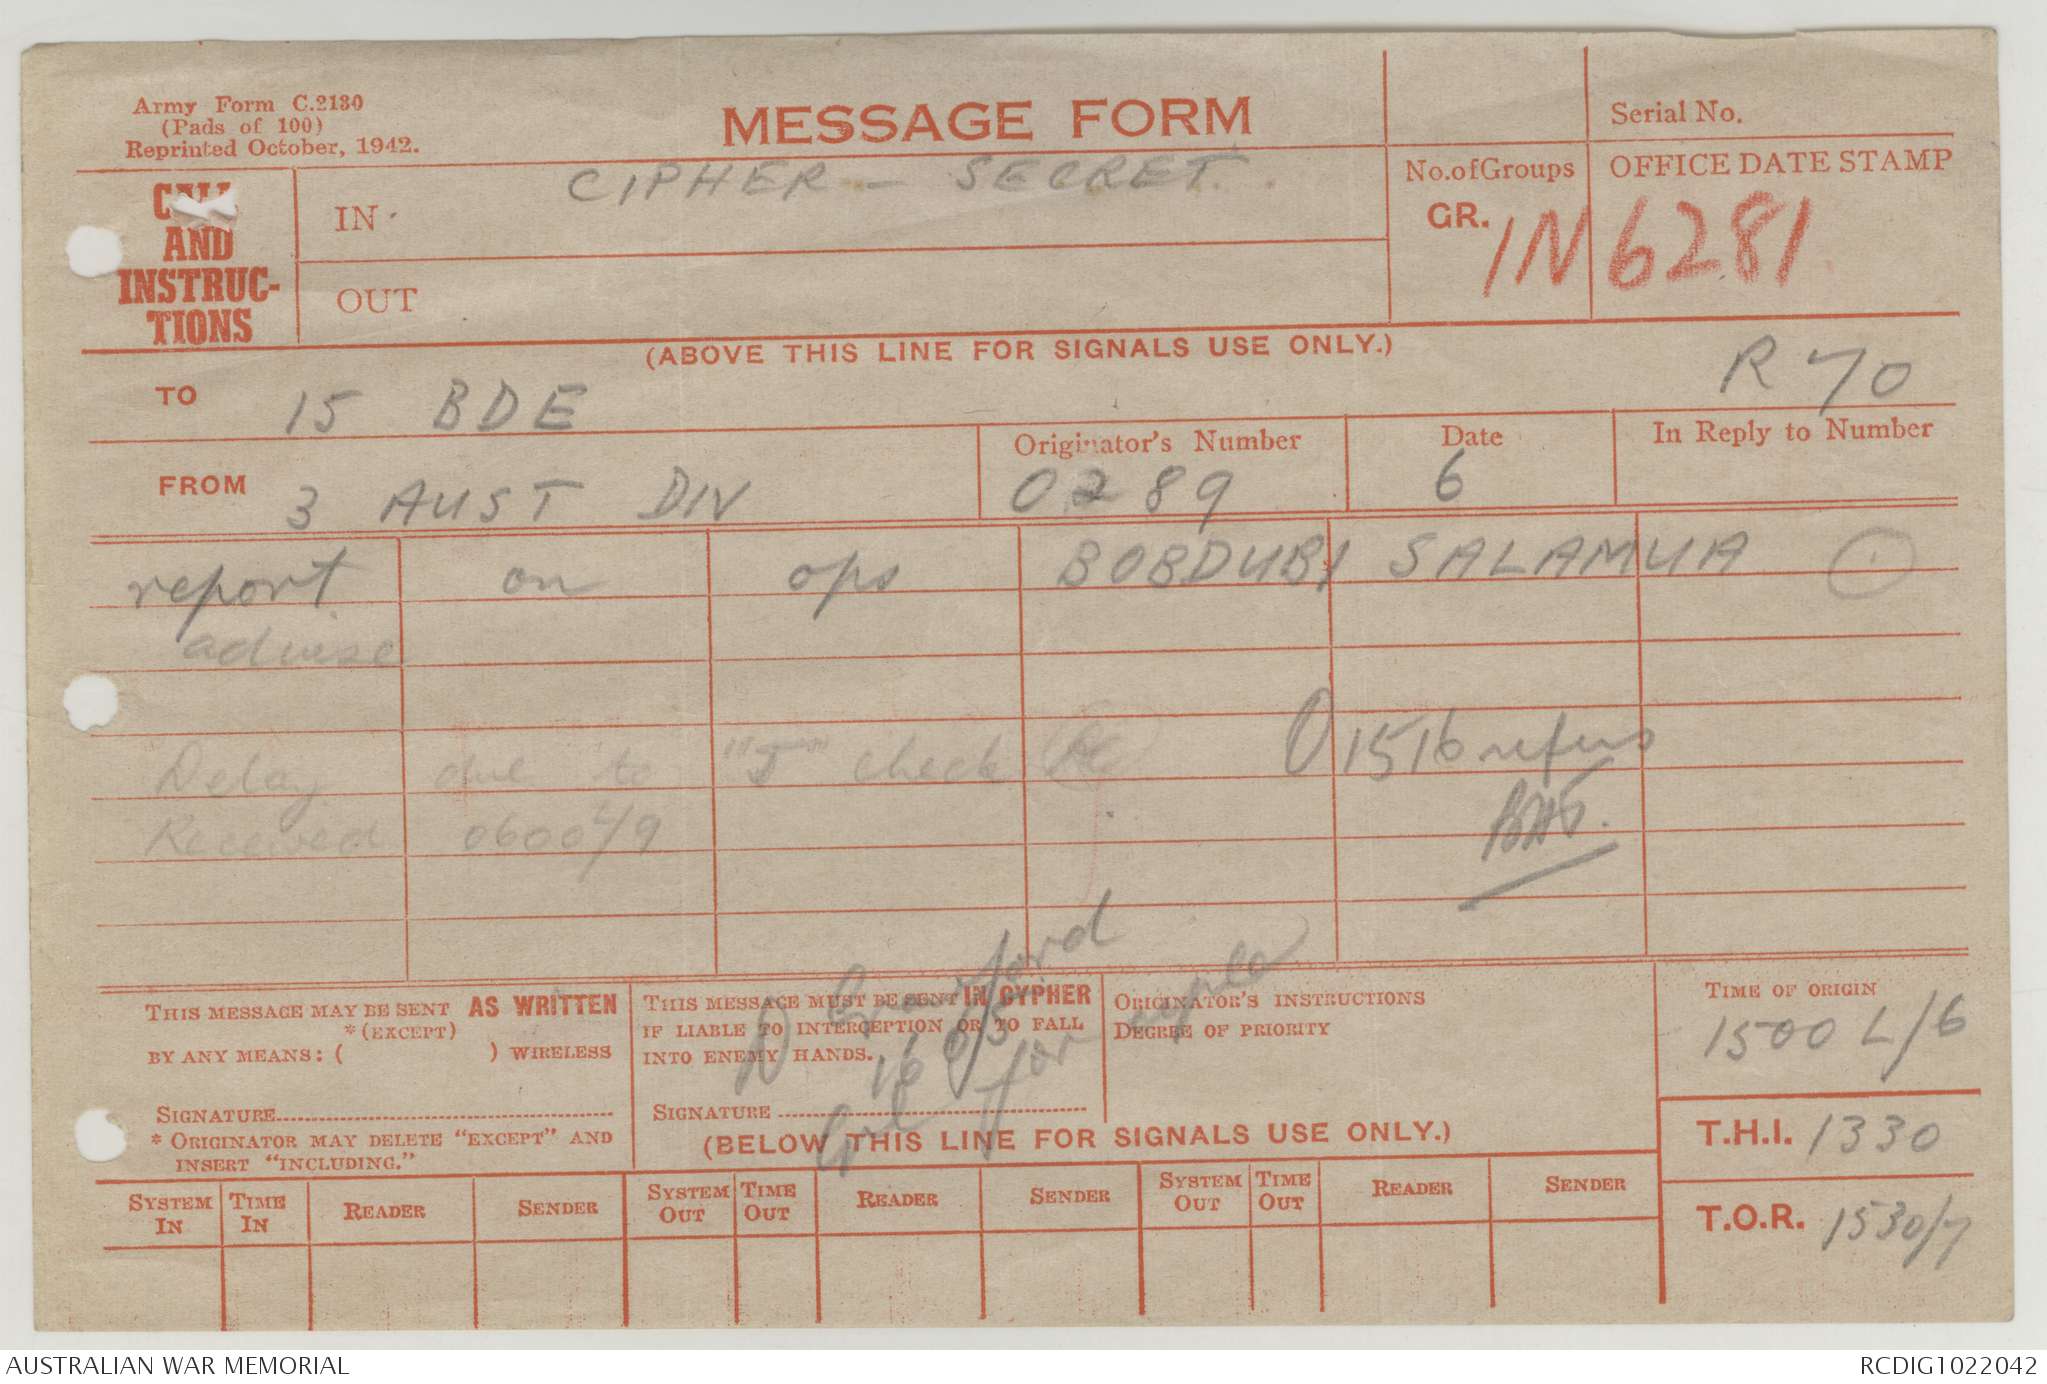 Army Form C.2130
(Pads of 100)
Reprinted October, 1942.
MESSAGE FORM
Serial No.
CALL
AND
INSTRUC-
TIONS
IN
CIPHER - SECRET
OUT
No. of Groups
GR.
OFFICE DATE STAMP
IN 6281
(ABOVE THIS LINE FOR SIGNALS USE ONLY.)
R 70
TO 15 BDE
FROM 3 AUST DIV
Originator's Number
0289
Date
6
In Reply to Number
report on ops BOBDUBI SALAMUA
advise
Delay due to "J" check
O1516 refers
Received 0600 L/9
THIS MESSAGE MAY BE SENT AS WRITTEN
*(EXCEPT)
BY ANY MEANS: ( ) WIRELESS
SIGNATURE
* ORIGINATOR MAY DELETE "EXCEPT" AND
INSERT "INCLUDING."
THIS MESSAGE MUST BE SENT IN CYPHER
IF LIABLE TO INTERCEPTION OR TO FALL
INTO ENEMY HANDS.
SIGNATURE
D Crawford
for
ORIGINATOR'S INSTRUCTIONS
DEGREE OF PRIORITY
TIME OF ORIGIN
1500 L/6
T.H.I. 1330
T.O.R. 1530/7
(BELOW THIS LINE FOR SIGNALS USE ONLY.)
SYSTEM IN TIME IN READER SENDER SYSTEM OUT TIME OUT READER SENDER SYSTEM OUT TIME OUT READER SENDER
AUSTRALIAN WAR MEMORIAL
RCDIG1022042